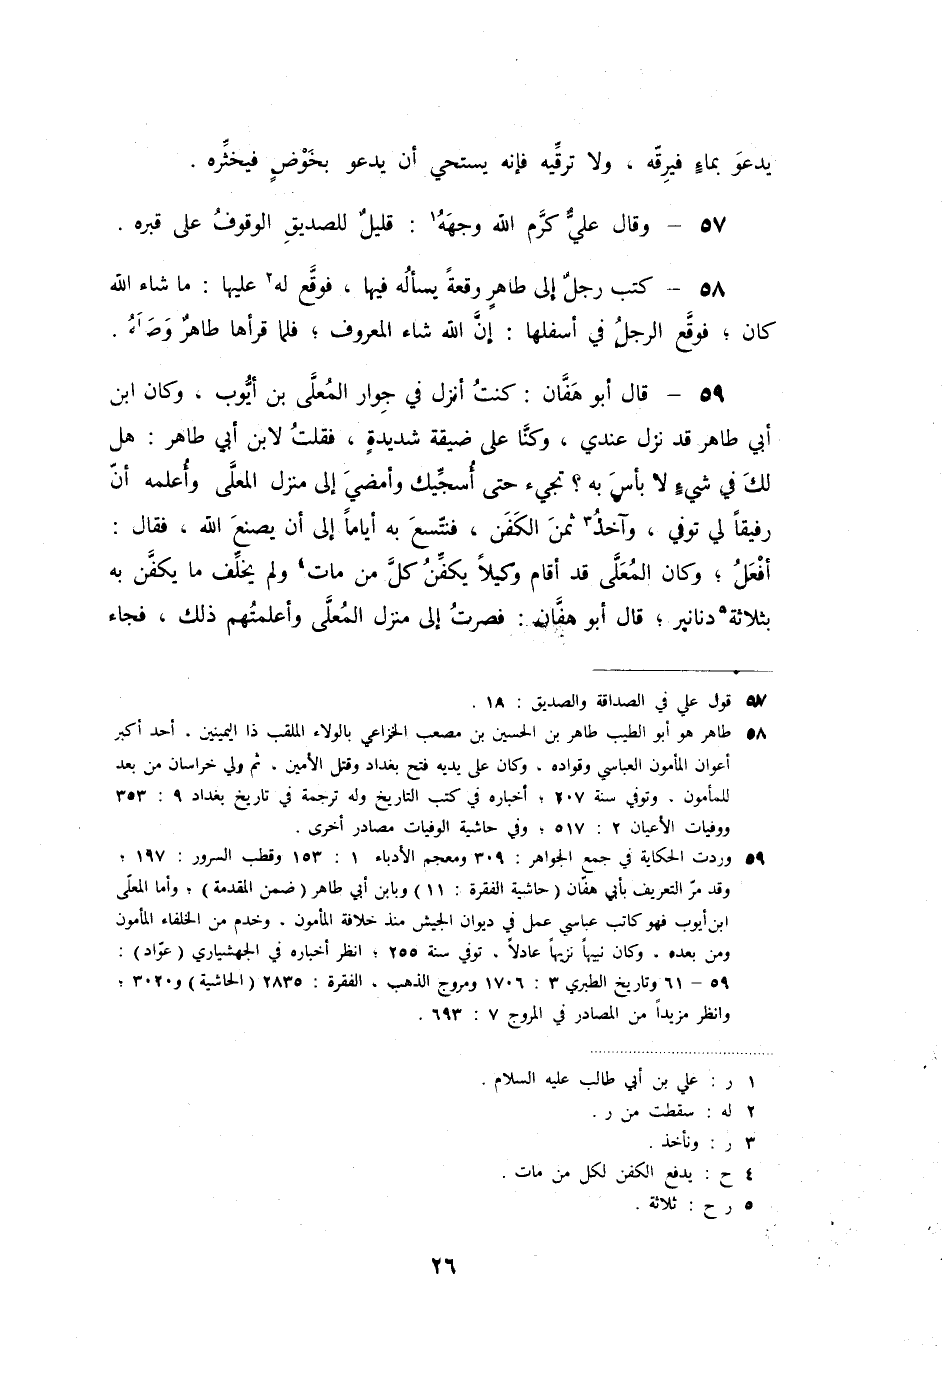 يدعوَ بماءٍ فيرِقّه ، ولا ترقِّيه فإنه يستحي أن يدعو بخَوْضٍ فيخثِّره .
٥٧ – وقال عليٌّ كرَّم الله وجهَهُ١ : قليلٌ للصديقِ الوقوفُ على قبره .
٥٨ – كتب رجلٌ إلى طاهرٍ رقعةً يسألُه فيها ، فوقَّع له٢ عليها : ما شاء الله
كان ؛ فوقَّع الرجلُ في أسفلها : إنَّ الله شاء المعروف ؛ فلما قرأها طاهرٌ وَصَلَهُ .
٥٩ – قال أبو هَفَّان : كنتُ أنزل في جِوار المُعلَّى بن أيُّوب ، وكان ابن
أبي طاهر قد نزل عندي ، وكنَّا على ضيقة شديدةٍ ، فقلتُ لابن أبي طاهر : هل
لكَ في شيءٍ لا بأسَ به ؟ تجيء حتى أُسجِّيك وأمضيَ إلى منزل المعلَّى وأُعلمه أنّ
رفيقاً لي توفي ، وآخذُ٣ ثمنَ الكَفَن ، فنتّسعَ به أياماً إلى أن يصنعَ الله ، فقال :
أفْعَلُ ؛ وكان المُعَلَّى قد أقام وكيلاً يكفِّنُ كلَّ من مات٤ ولم يخلِّف ما يكفَّن به
بثلاثة٥ دنانير ؛ قال أبو هفَّان : فصرتُ إلى منزل المعلَّى وأعلمتُهم ذلك ، فجاء
٥٧ قول علي في الصداقة والصديق : ١٨ .
٥٨ طاهر هو أبو الطيب طاهر بن الحسين بن مصعب الخزاعي بالولاء الملقب ذا اليمينين . أحد أكبر
أعوان المأمون العباسي وقواده . وكان على يديه فتح بغداد وقتل الأمين . ثم ولي خراسان من بعد
للمأمون . وتوفي سنة ٢٠٧ ؛ أخباره في كتب التاريخ وله ترجمة في تاريخ بغداد ٩ : ٣٥٣
ووفيات الأعيان ٢ : ٥١٧ ؛ وفي حاشية الوفيات مصادر أخرى .
٥٩ وردت الحكاية في جمع الجواهر : ٣٠٩ ومعجم الأدباء ١ : ١٥٣ وقطب السرور : ١٩٧ ؛
وقد مرّ التعريف بأبي هفّان ( حاشية الفقرة : ١١ ) وبابن أبي طاهر ( ضمن المقدمة ) ؛ وأما المعلّى
ابن أيوب فهو كاتب عباسي عمل في ديوان الجيش منذ خلافة المأمون . وخدم من الخلفاء المأمون
ومن بعده . وكان نبيهاً نزيهاً عادلاً . توفي سنة ٢٥٥ ؛ انظر أخباره في الجهشياري ( عوّاد ) :
٥٩ – ٦١ وتاريخ الطبري ٣ : ١٧٠٦ ومروج الذهب . الفقرة : ٢٨٣٥ ( الحاشية ) و٣٠٢٠ ؛
وانظر مزيداً من المصادر في المروج ٧ : ٦٩٣ .
١ ر : علي بن أبي طالب عليه السلام .
٢ له : سقطت من ر .
٣ ر : ونأخذ .
٤ ح : يدفع الكفن لكل من مات .
٥ ر ح : ثلاثة .
٢٦